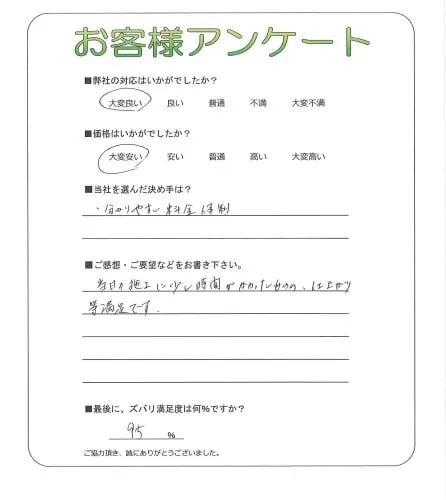 お客様アンケート
■弊社の対応はいかがでしたか？
大変良い 良い 普通 不満 大変不満
■価格はいかがでしたか？
大変安い 安い 普通 高い 大変高い
■当社を選んだ決め手は？
・分かりやすい料金体制
■ご感想・ご要望などをお書き下さい。
当日の施工に少し時間がかかったものの、仕上がり
等満足です．
■最後に、ズバリ満足度は何％ですか？
95 ％
ご協力頂き、誠にありがとうございました。